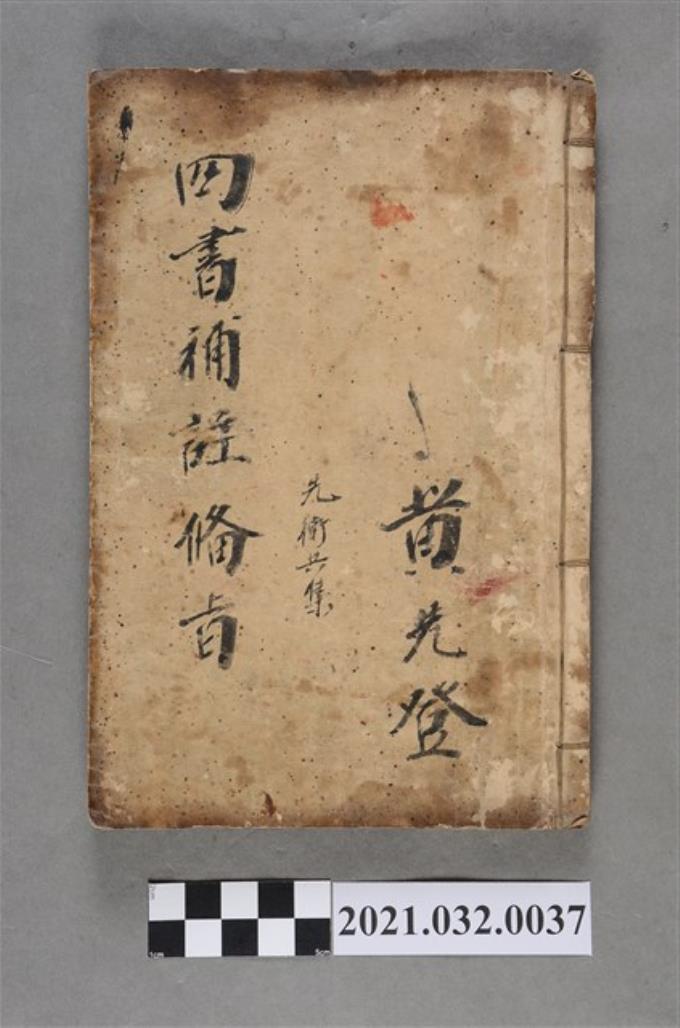 黄先登
先衛共集
四書補註俻旨
2021.032.0037